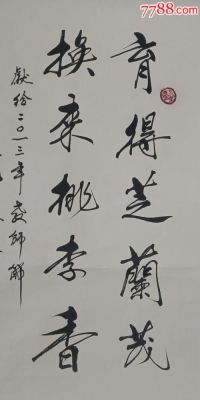 育得芝蘭茂
换来桃李香
獻给二〇一三年教師節
7788.com